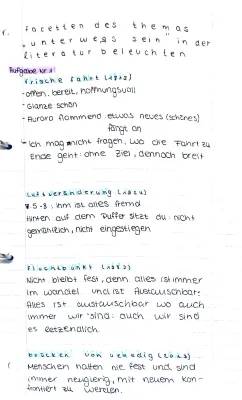 1.
facetten des themas
"unterwegs sein" in der
literatur beleuchten
Aufgabe Nr. 1
frische fahrt
- offen, bereit, hoffnungsvoll
- Glänze schön
- Aurora flammend etwas neues (schönes)
fängt an
- Ich mag nicht fragen, wo die Fahrt zu
Ende geht: ohne Ziel, dennoch breit
luftveränderung
5-8: ihm ist alles fremd
Hinten auf dem Puffer sitzt du: nicht
gemütlich, nicht eingestiegen
fluchtpunkt
Nicht bleibt fest, denn alles ist immer
im wandel und ist Austauschbar.
Alles ist austauschbar wo auch
immer wir sind: auch wir sind
es letzendlich.
brücken von venedig
Menschen halten nie fest und sind
immer neugierig, mit neuem kon-
frontiert zu werden.